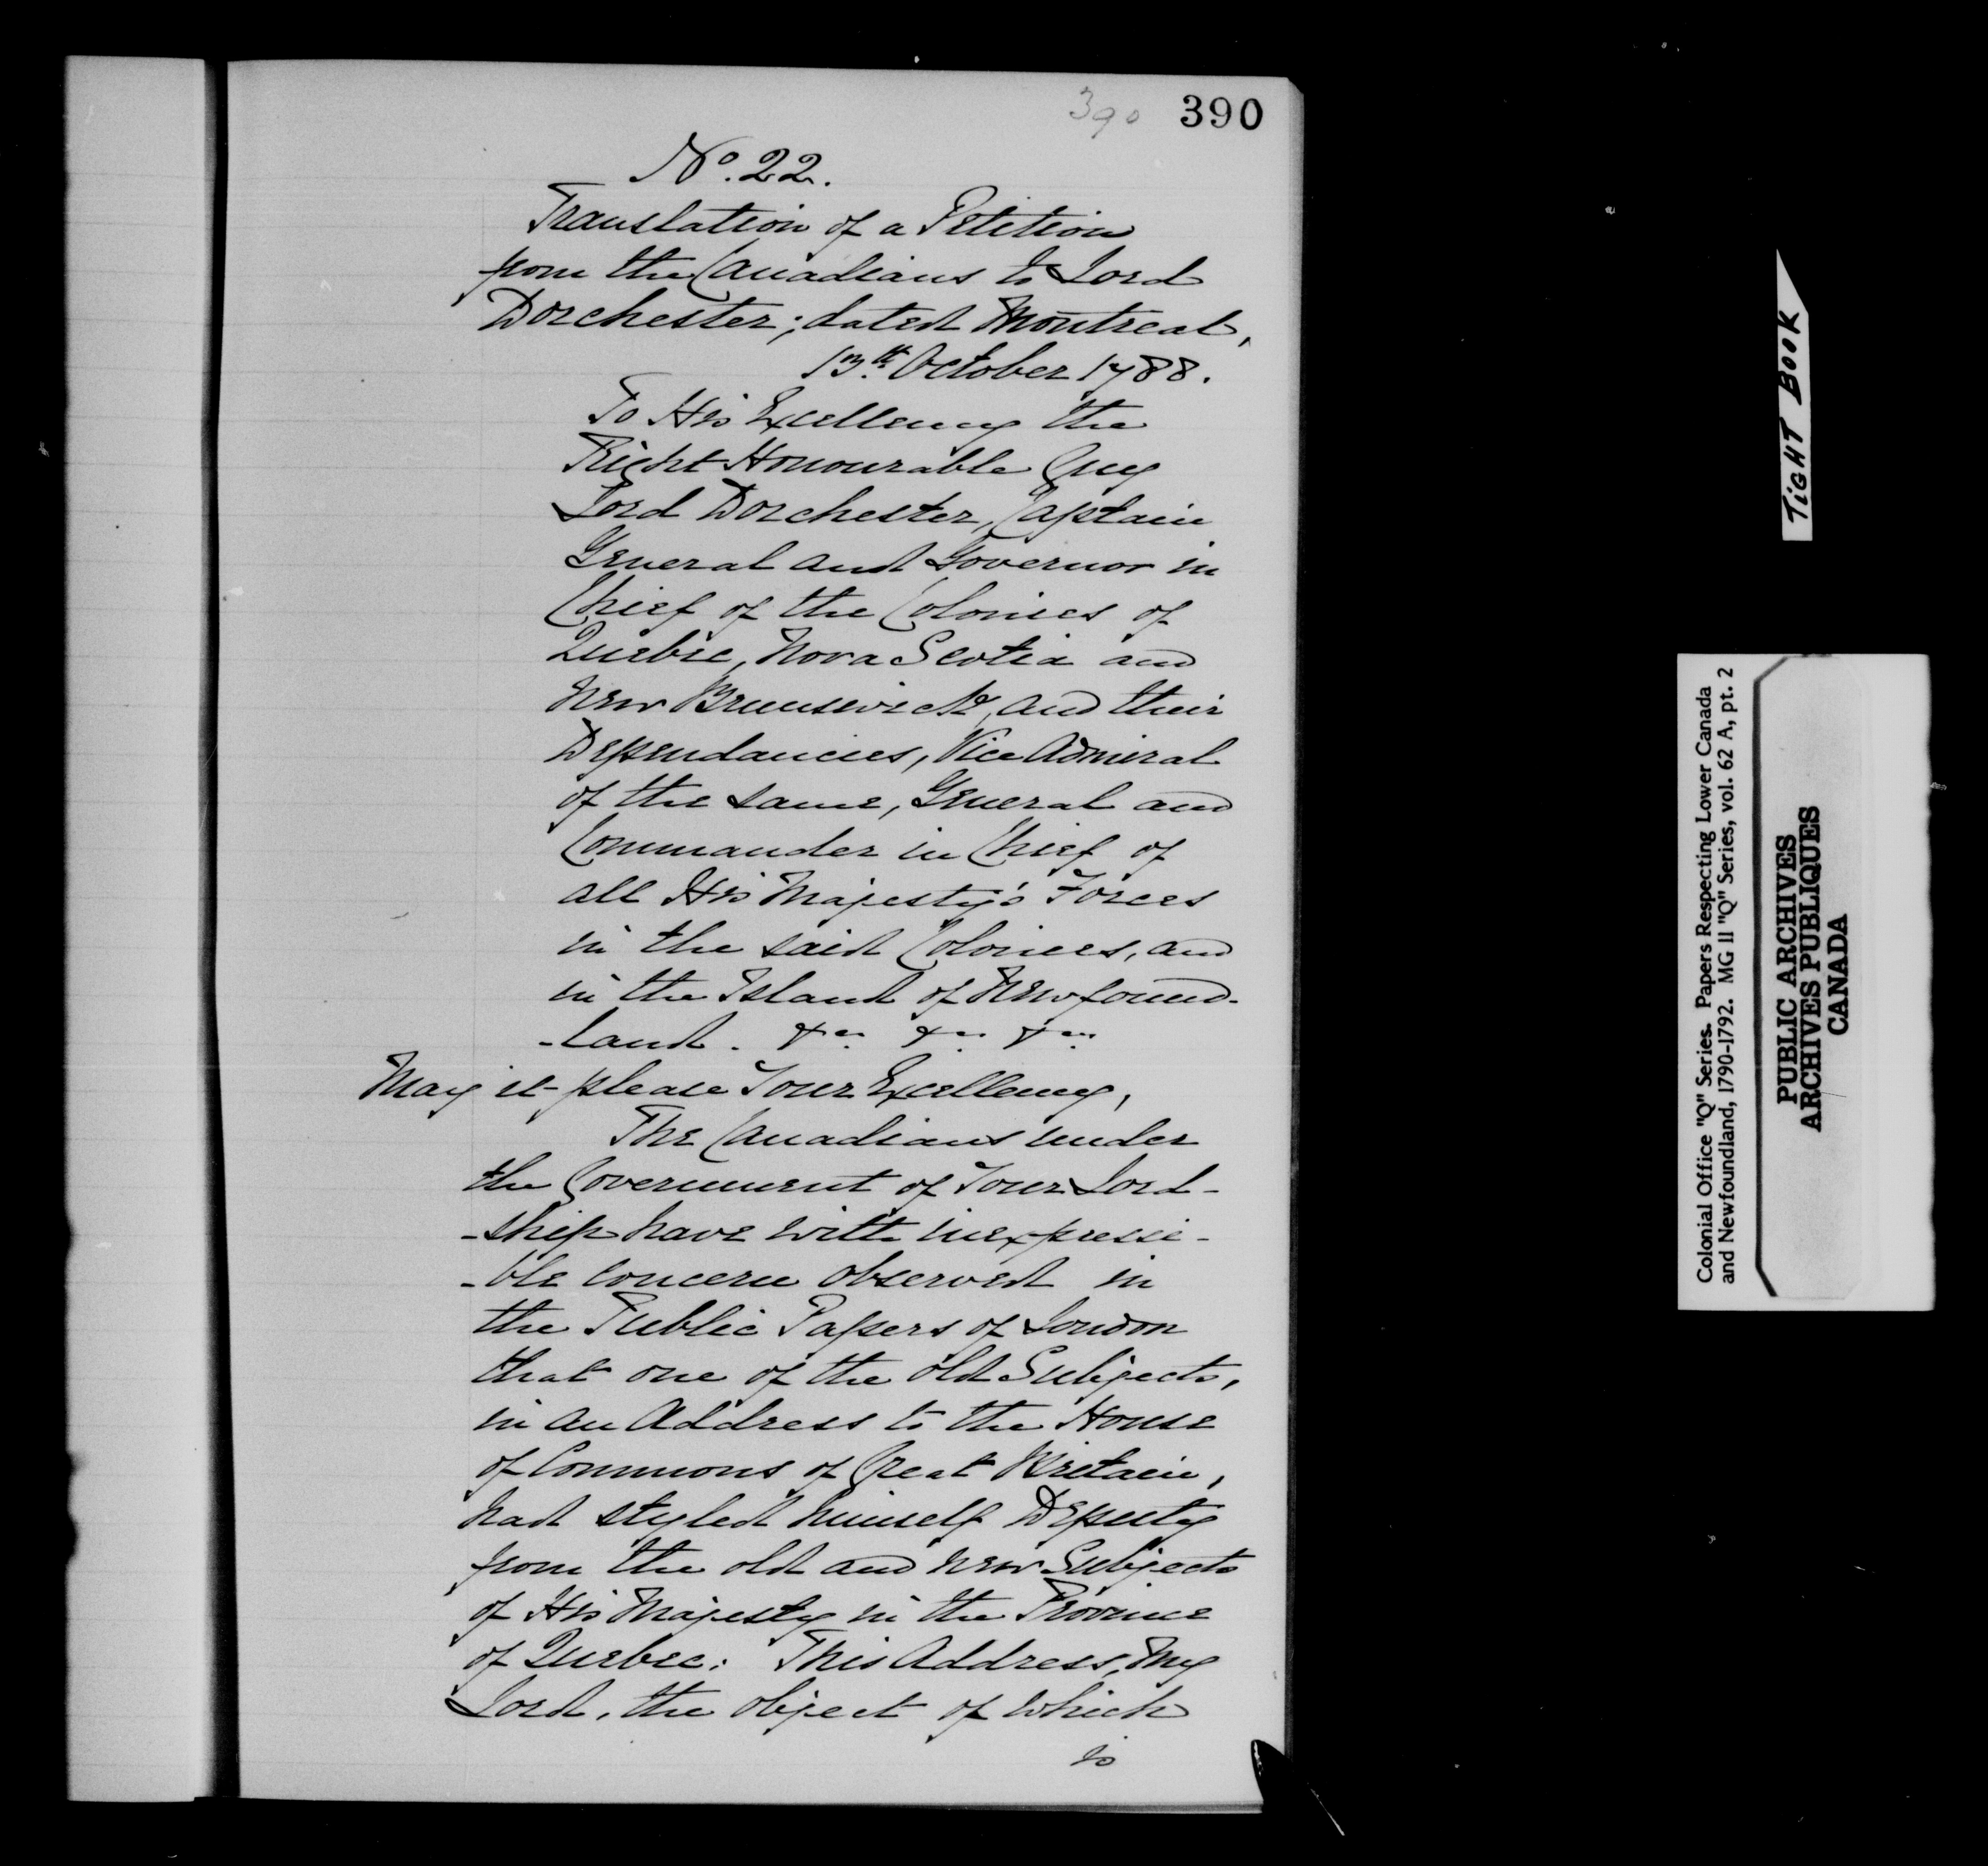 390 390
No. 22.
Translation of a Petition
from the Canadians to Lord
Dorchester; dated Montreal,
13th. October 1788.
To His Excellency the
Right Honourable Guy
Lord Dorchester, Captain
General and Governor in
Chief of the Colonies of
Quebec, Nova Scotia and
New Brunswick, and their
Dependancies, Vice Admiral
of the same, General and
Commander in Chief of
all His Majesty's Forces
in the said Colonies, and
in the Island of Newfound-
-land. &ca. &ca. &ca.
May it please Your Excellency,
The Canadians under
the Government of Your Lord-
-ship have with inexpressi-
-ble concern observed in
the Public Papers of London
that one of the old Subjects,
in an Address to the House
of Commons of Great Britain,
had styled himself Deputy
from the old and new Subjects
of His Majesty in the Province
of Quebec: This Address, My
Lord, the object of which
is
TIGHT BOOK
Colonial Office "Q" Series. Papers Respecting Lower Canada
and Newfoundland, 1790-1792. MG 11 "Q" Series, vol. 62 A, pt. 2
PUBLIC ARCHIVES
ARCHIVES PUBLIQUES
CANADA